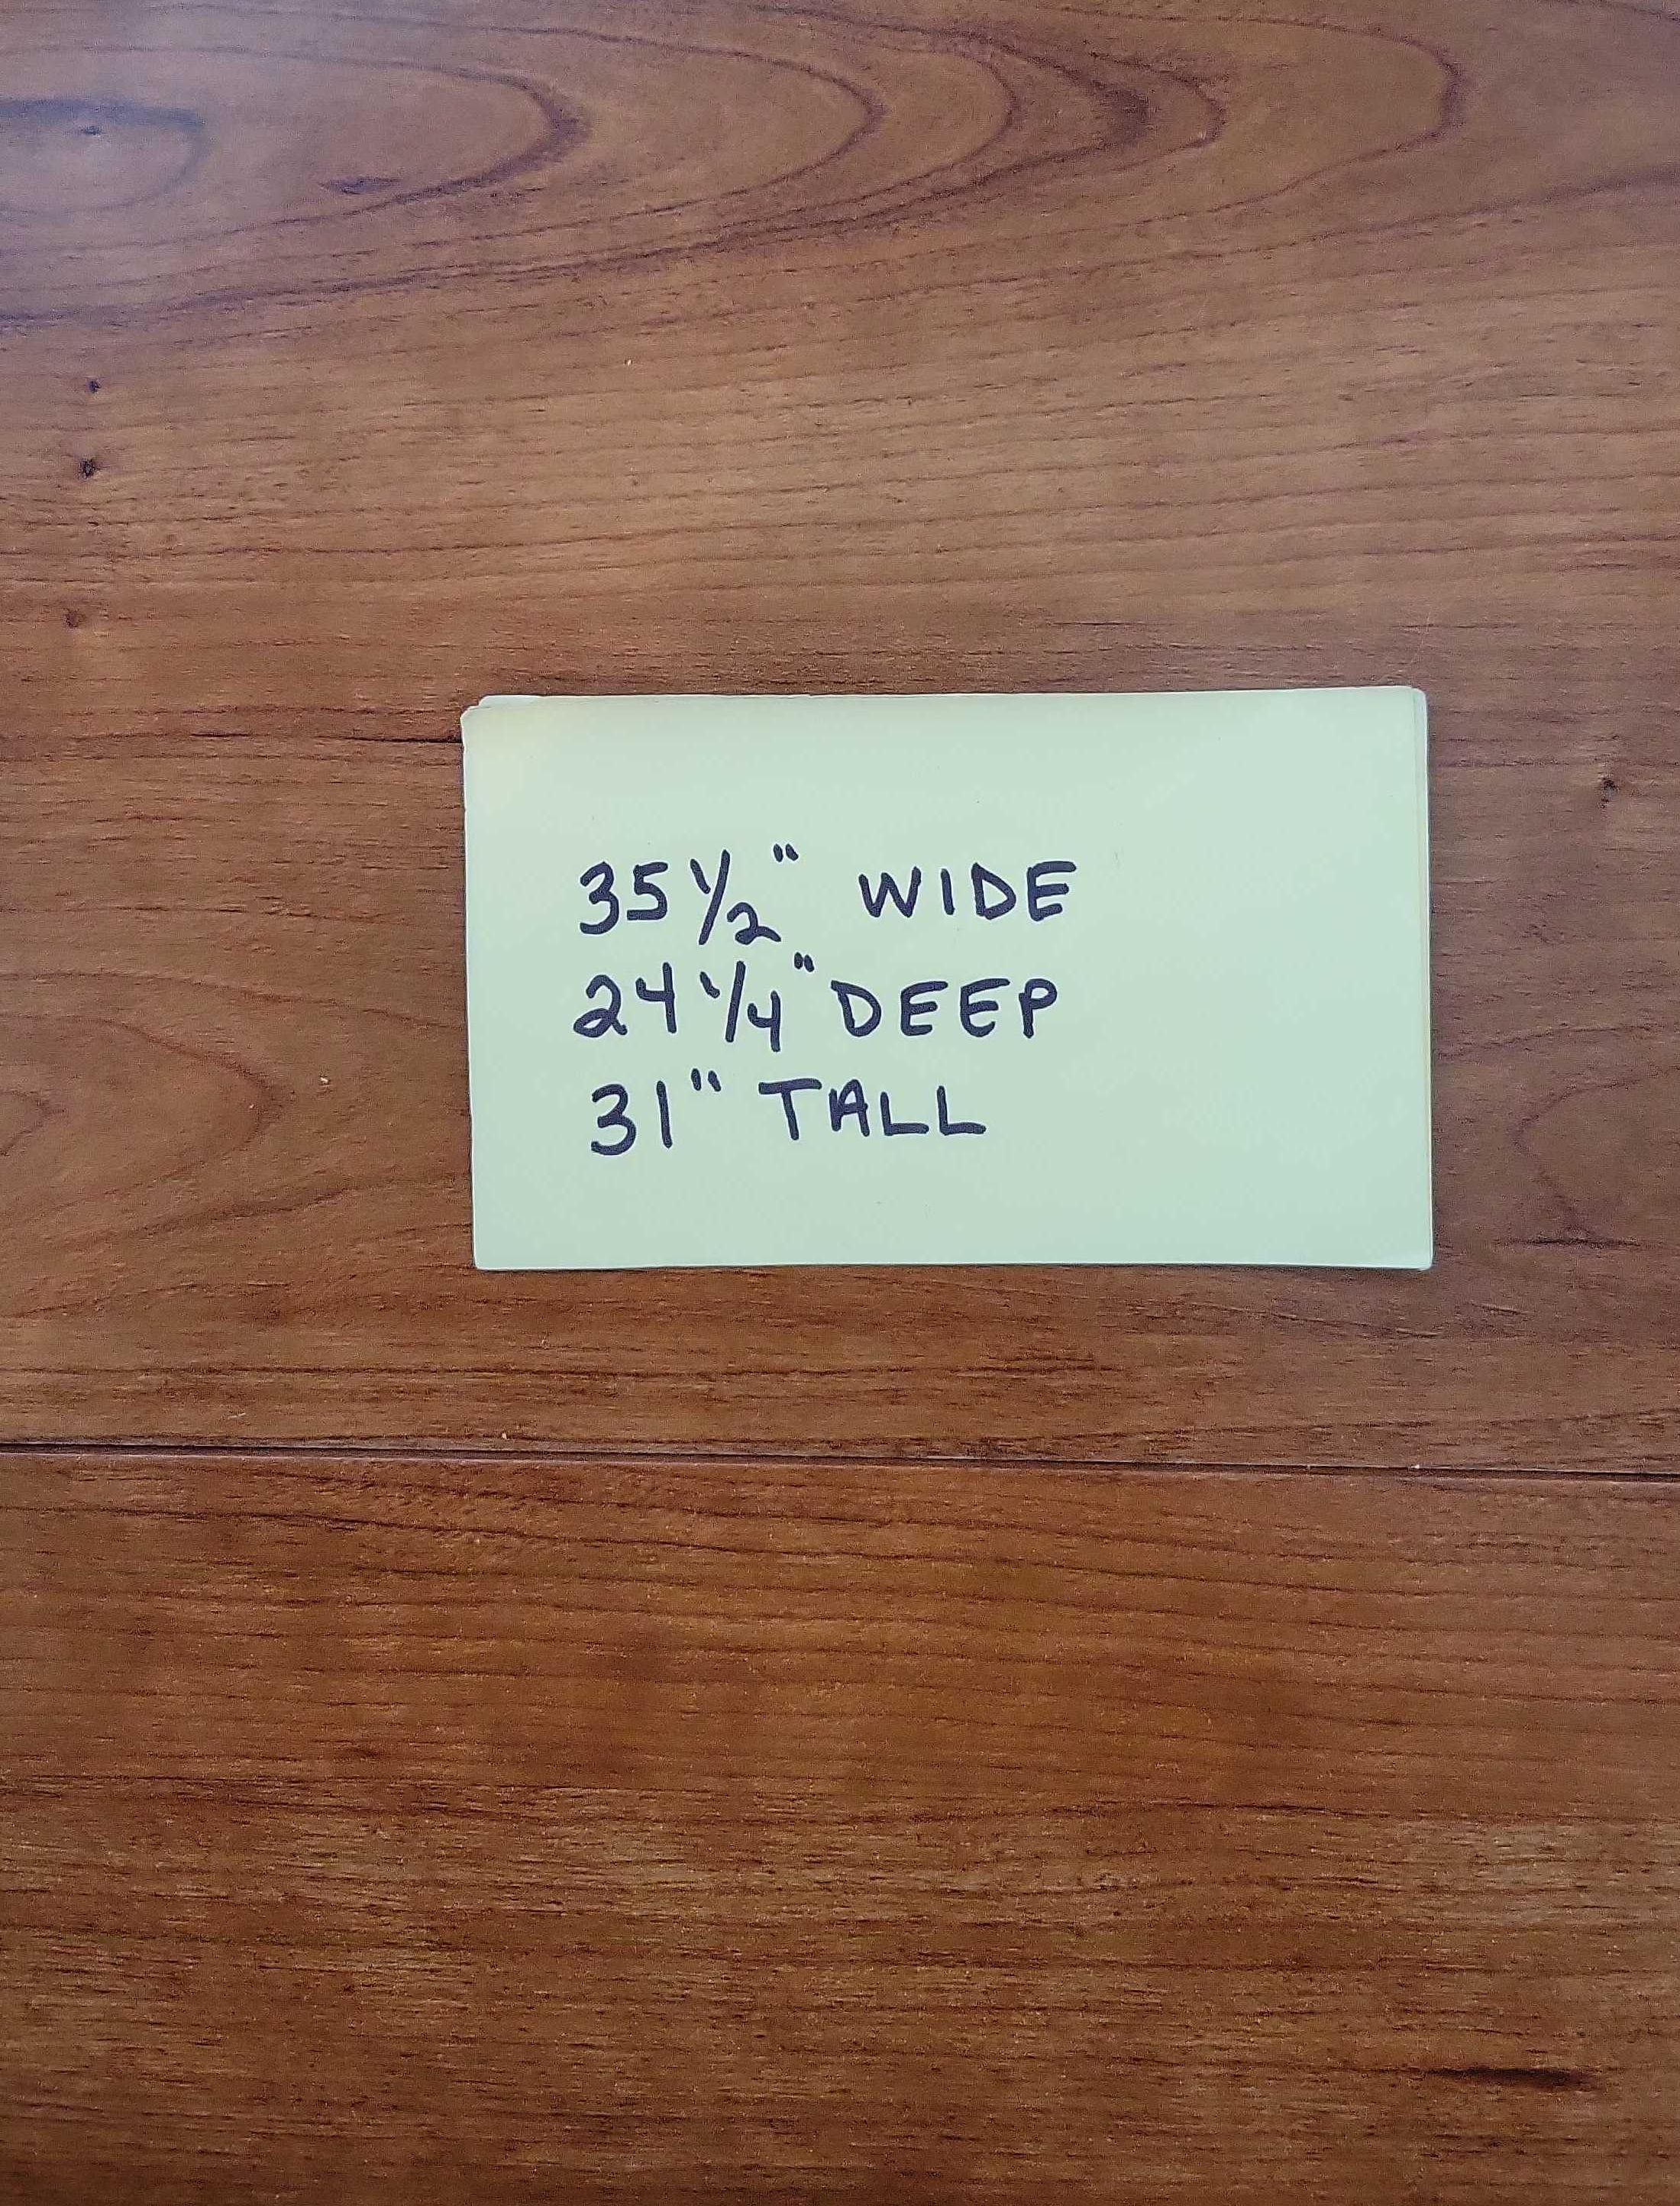 35 1/2" WIDE
24 1/4" DEEP
31" TALL